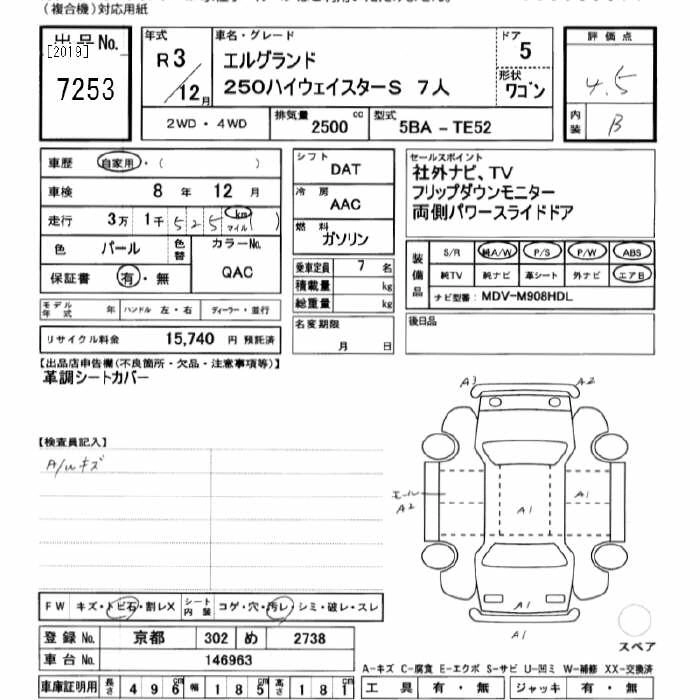 (複合機)対応用紙
出品No.
[2019]
7253
年式 車名・グレード ドア
R3/12月
エルグランド 5
250ハイウェイスターS 7人
形状 ワゴン
評価点
4.5
内装 B
2WD・4WD 排気量 2500cc 型式 5BA-TE52
車歴 自家用・( )
車検 8年 12月
走行 3万 1千 525 km マイル ( )
色 パール 色替 カラーNo. QAC
保証書 有・無
モデル年式 年 ハンドル 左・右 ディーラー・並行
リサイクル料金 15,740円 預託済
シフト DAT
冷房 AAC
燃料 ガソリン
乗車定員 7名
積載量 kg
総重量 kg
名変期限
月 日
セールスポイント
社外ナビ、TV
フリップダウンモニター
両側パワースライドドア
装備品 S/R 純A/W P/S P/W ABS
純TV 純ナビ 革シート 外ナビ エアB
ナビ型番: MDV-M908HDL
後日品
【出品店申告欄(不良箇所・欠品・注意事項等)】
革調シートカバー
【検査員記入】
A/Wキズ
A3 A2
モール A2
A1 A1
A1
A1
スペア
FW キズ・トビ石・割レX シート内装 コゲ・穴・汚レ・シミ・破レ・スレ
登録No. 京都 302 め 2738
車台No. 146963
車庫証明用 長さ 496cm 幅 185cm 高さ 181cm
A-キズ C-腐食 E-エクボ S-サビ U-凹ミ W-補修 XX-交換済
工具 有・無 ジャッキ 有・無